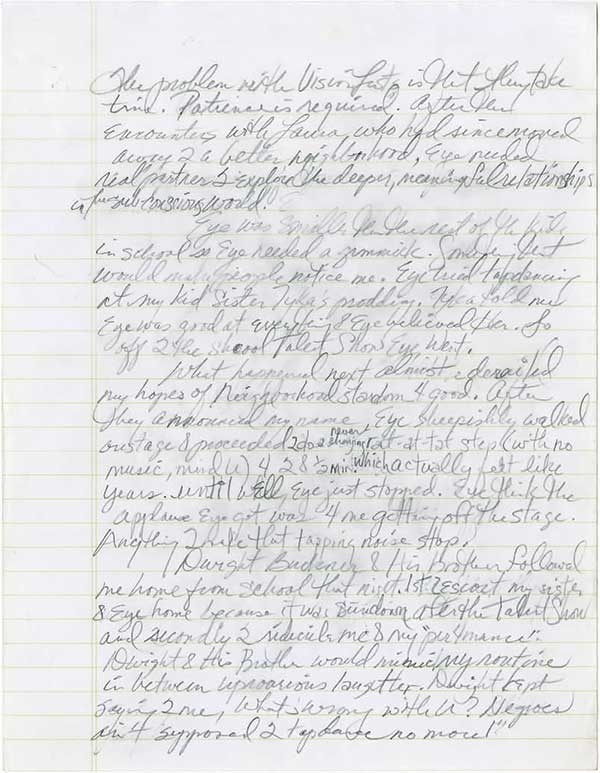 The problem with Vision Lists is that they take
time. Patience is required. After the
Encounters with Laura, who had since moved
away 2 a better neighborhood, Eye needed
real partner 2 explore the deeper, meaningful relationships
in the sub-conscious world.
Eye was smaller than the rest of the kids
in school so Eye needed a gimmick. Something that
would make people notice me. Eye tried tapdancing
at my kid sister Tyka's prodding. Tyka told me
Eye was good at everything & Eye believed her. So
off 2 the school Talent Show Eye went.
What happened next almost derailed
my hopes of Neighborhood stardom 4 good. After
they announced my name, Eye sheepishly walked
onstage & proceeded 2 do a never changing rat-at-tat step (with no
music, mind U) 4 28 ½ min. which actually felt like
years. until well, Eye just stopped. Eye think the
applause Eye got was 4 me getting off the stage.
Anything 2 make that tapping noise stop.
Dwight Buckner & His Brother followed
me home from school that night. 1st 2 escort my sister
& Eye home because it was sundown after the Talent Show
and secondly 2 ridicule me & my "performance".
Dwight & His Brother would mimic my routine
in between uproarious laughter. Dwight kept
saying 2 me, "What's wrong with U? Negroes
ain't supposed 2 tapdance no more!"